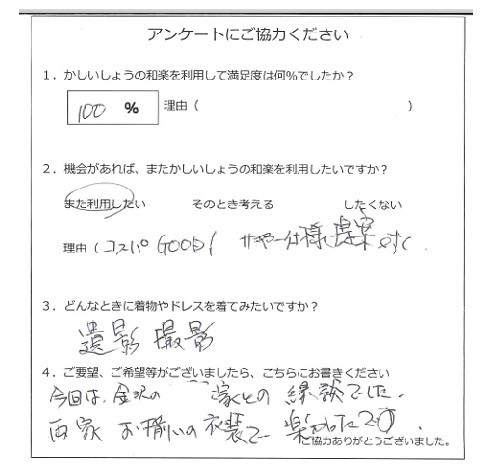 アンケートにご協力ください
1．かしいしょうの和楽を利用して満足度は何%でしたか？
100 % 理由（ ）
2．機会があれば、またかしいしょうの和楽を利用したいですか？
また利用したい そのとき考える したくない
理由（コスパGOOD! 様 提案
3．どんなときに着物やドレスを着てみたいですか？
遺影撮影
4．ご要望、ご希望等がございましたら、こちらにお書きください
今回は、金沢の 家との 縁談でした．
両家 お揃いの衣装で
ご協力ありがとうございました。